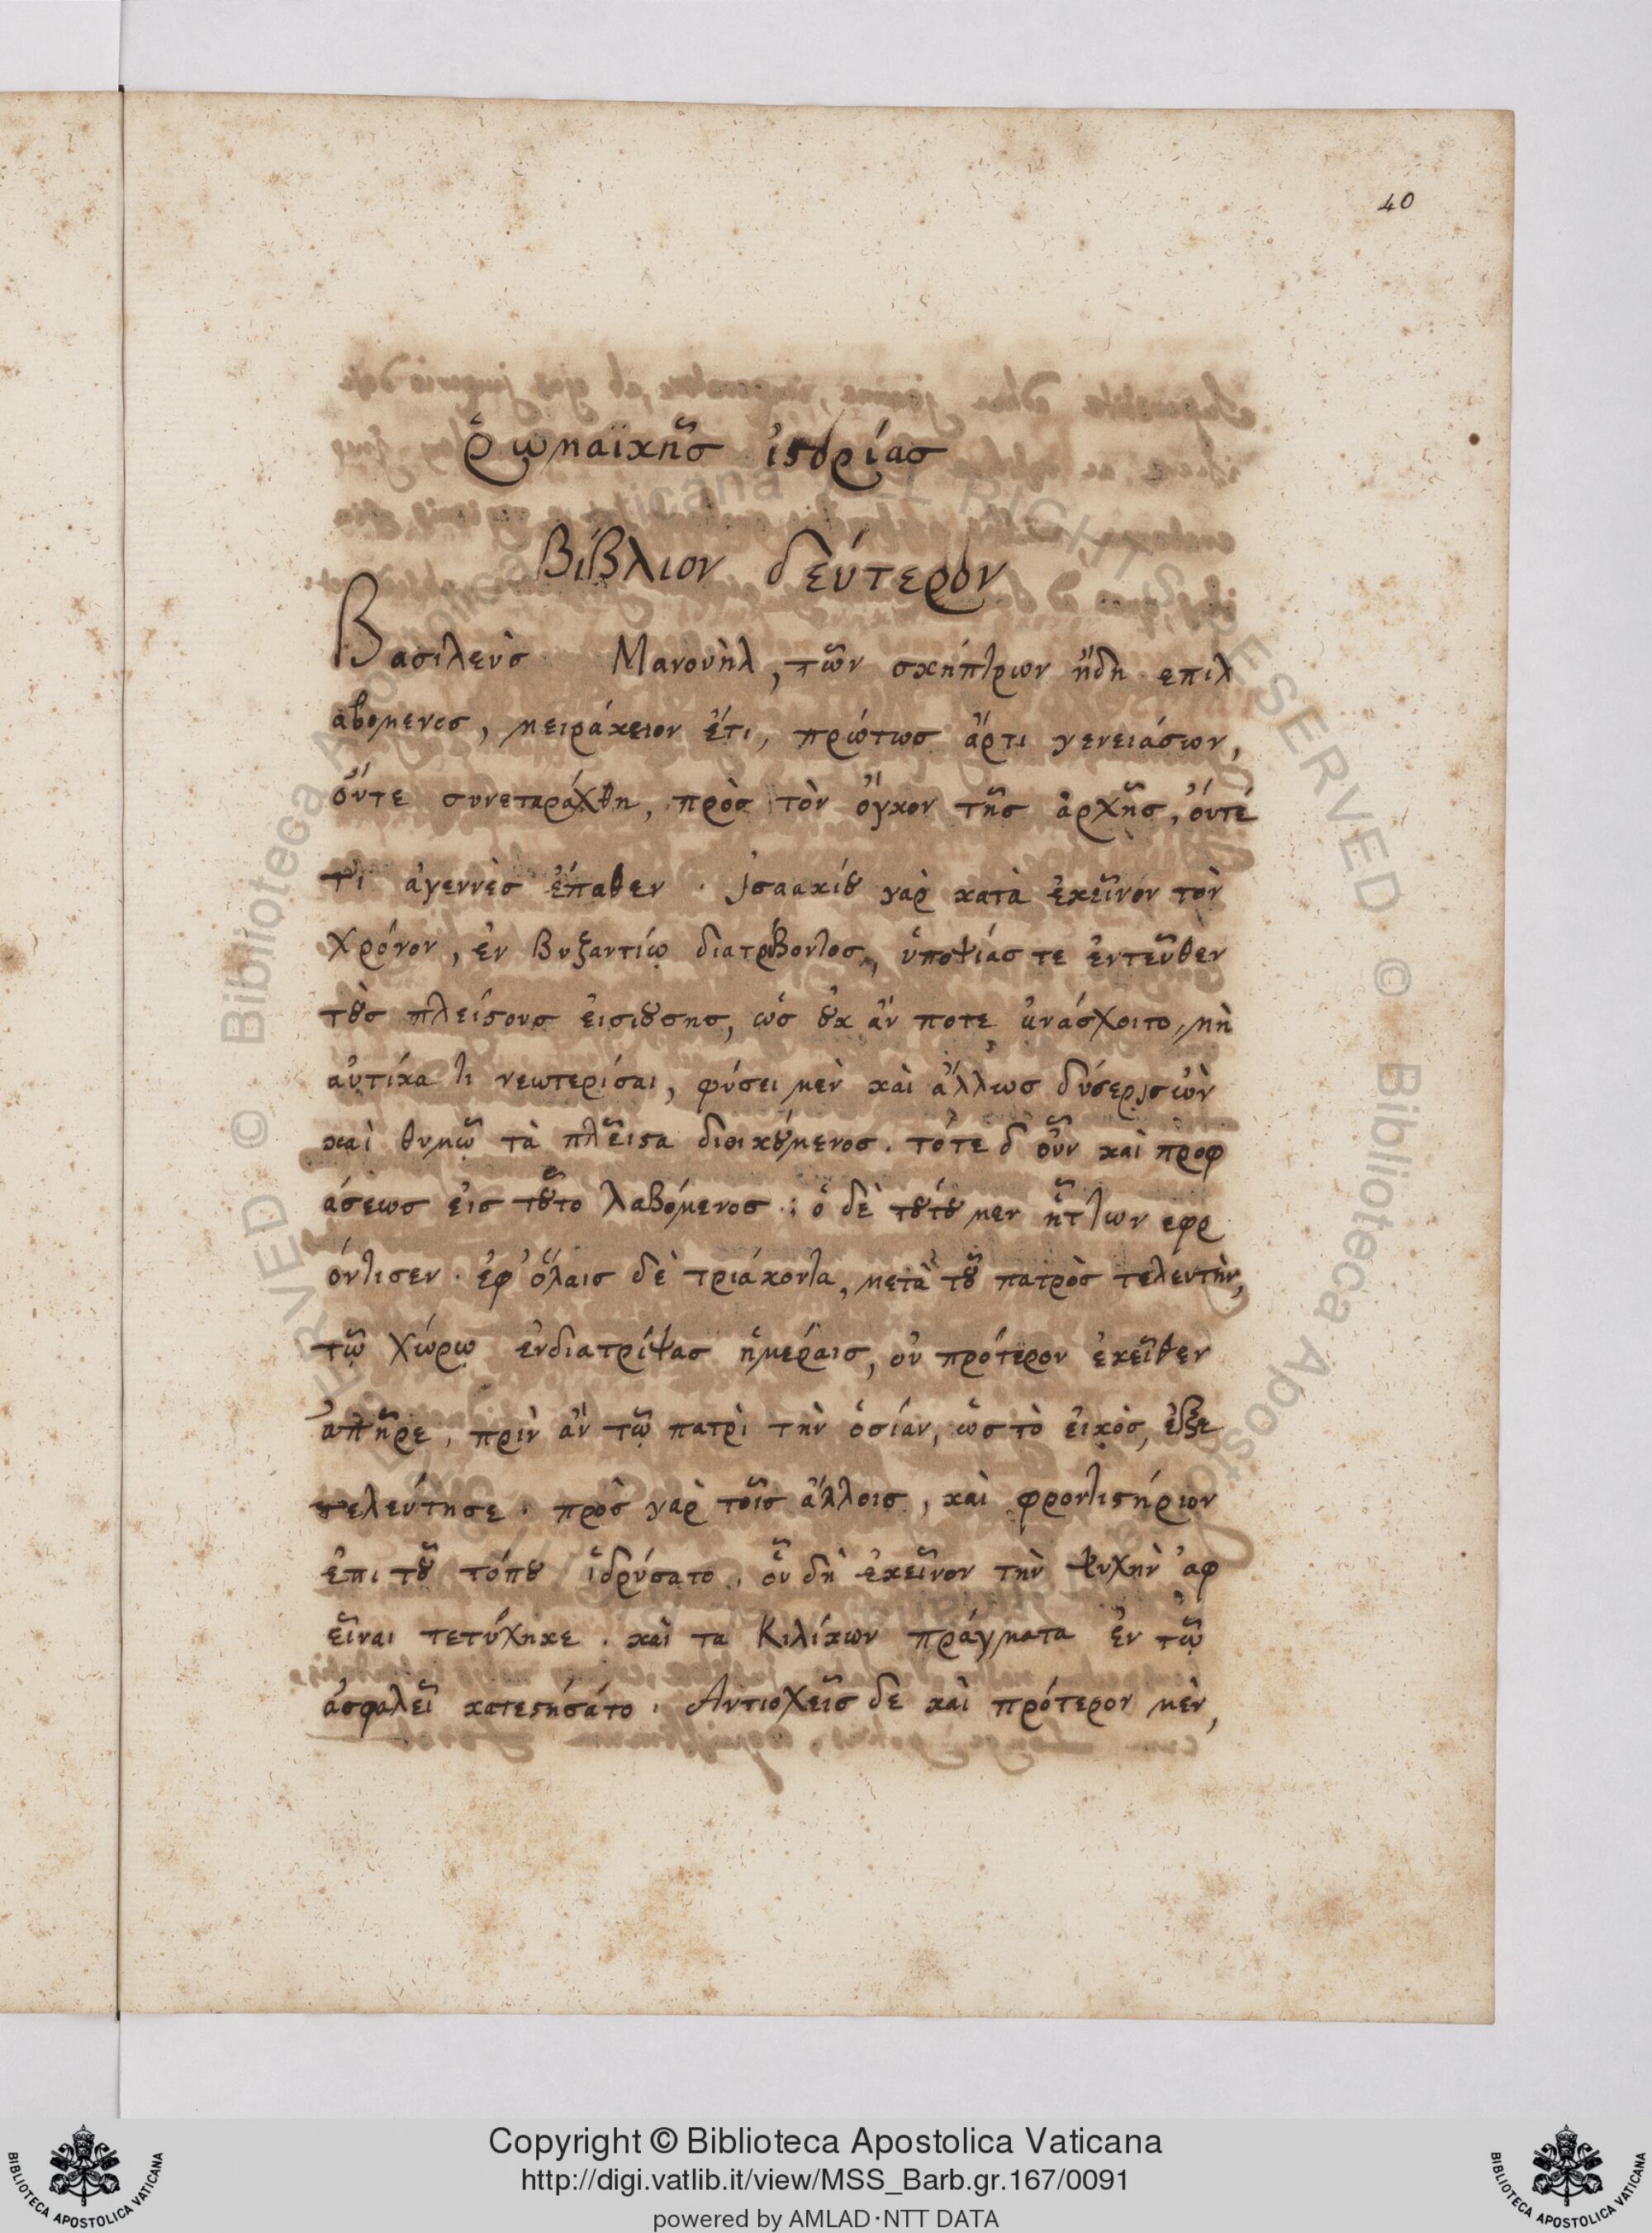 40
ῥωμαϊκῆς ἱστορίας
Βίβλιον δεύτερον
Βασιλεὺς Μανουὴλ, τῶν σκήπτρων ἤδη επιλ
αβομενος, μειράκειον ἔτι, πρώτως ἄρτι γενειάσων,
οὔτε συνεταράχθη, πρὸς τὸν ὄγκον τῆς ἀρχῆς, ὄυτέ
τὶ ἀγεννὲς ἔπαθεν . ἰσαακίȣ γαρ κατὰ ἐκεῖνον τὸν
χρόνον, ἐν Βυζαντίῳ διατρίβοντος, ὑποψίας τε ἐντεῦθεν
τȣ̀ς πλείστους εισιȣ́σης, ὡς ȣ̓κ ἄν ποτε ἀνάσχοιτο, μὴ
αὐτίκα τι νεωτερίσαι, φύσει μὲν καὶ ἄλλως δύσερις ὢν
καὶ θυμῷ τὰ πλεῖστα διοικȣ́μενος. τότε δ οὖν καὶ προφ
άσεως εἰς τȣ͂το λαβόμενος : ὁ δὲ τȣ́τȣ μεν ἧττων εφρ
όντισεν . ἐφ' ὅλαις δὲ τριάκοντα, μετὰ τȣ͂ πατρὸς τελευτὴν,
τῷ χώρῳ ἐνδιατρίψας ἡμέραις, ου πρότερον ἐκεῖθεν
ἀπῆρε, πρὶν ἂν τῷ πατρὶ τὴν ὁσίαν, ὡς τὸ εἰκὸς, ἐξε
τελεύτησε . πρὸς γαρ τοῖς ἄλλοις, καὶ φροντιστήριον
ἐπι τȣ͂ τόπȣ ἱδρύσατο . οὗ δὴ ἐκεῖνον τὴν ψυχὴν ἀφ
εῖναι τετύχηκε . καὶ τα Κιλίκων πράγματα ἐν τῷ
ἀσφαλεῖ κατεστήσάτο . Αντιοχεῖς δε καὶ πρότερον μὲν,
Copyright © Biblioteca Apostolica Vaticana
http://digi.vatlib.it/view/MSS_Barb.gr.167/0091
powered by AMLAD·NTT DATA
BIBLIOTECA APOSTOLICA VATICANA
BIBLIOTECA APOSTOLICA VATICANA